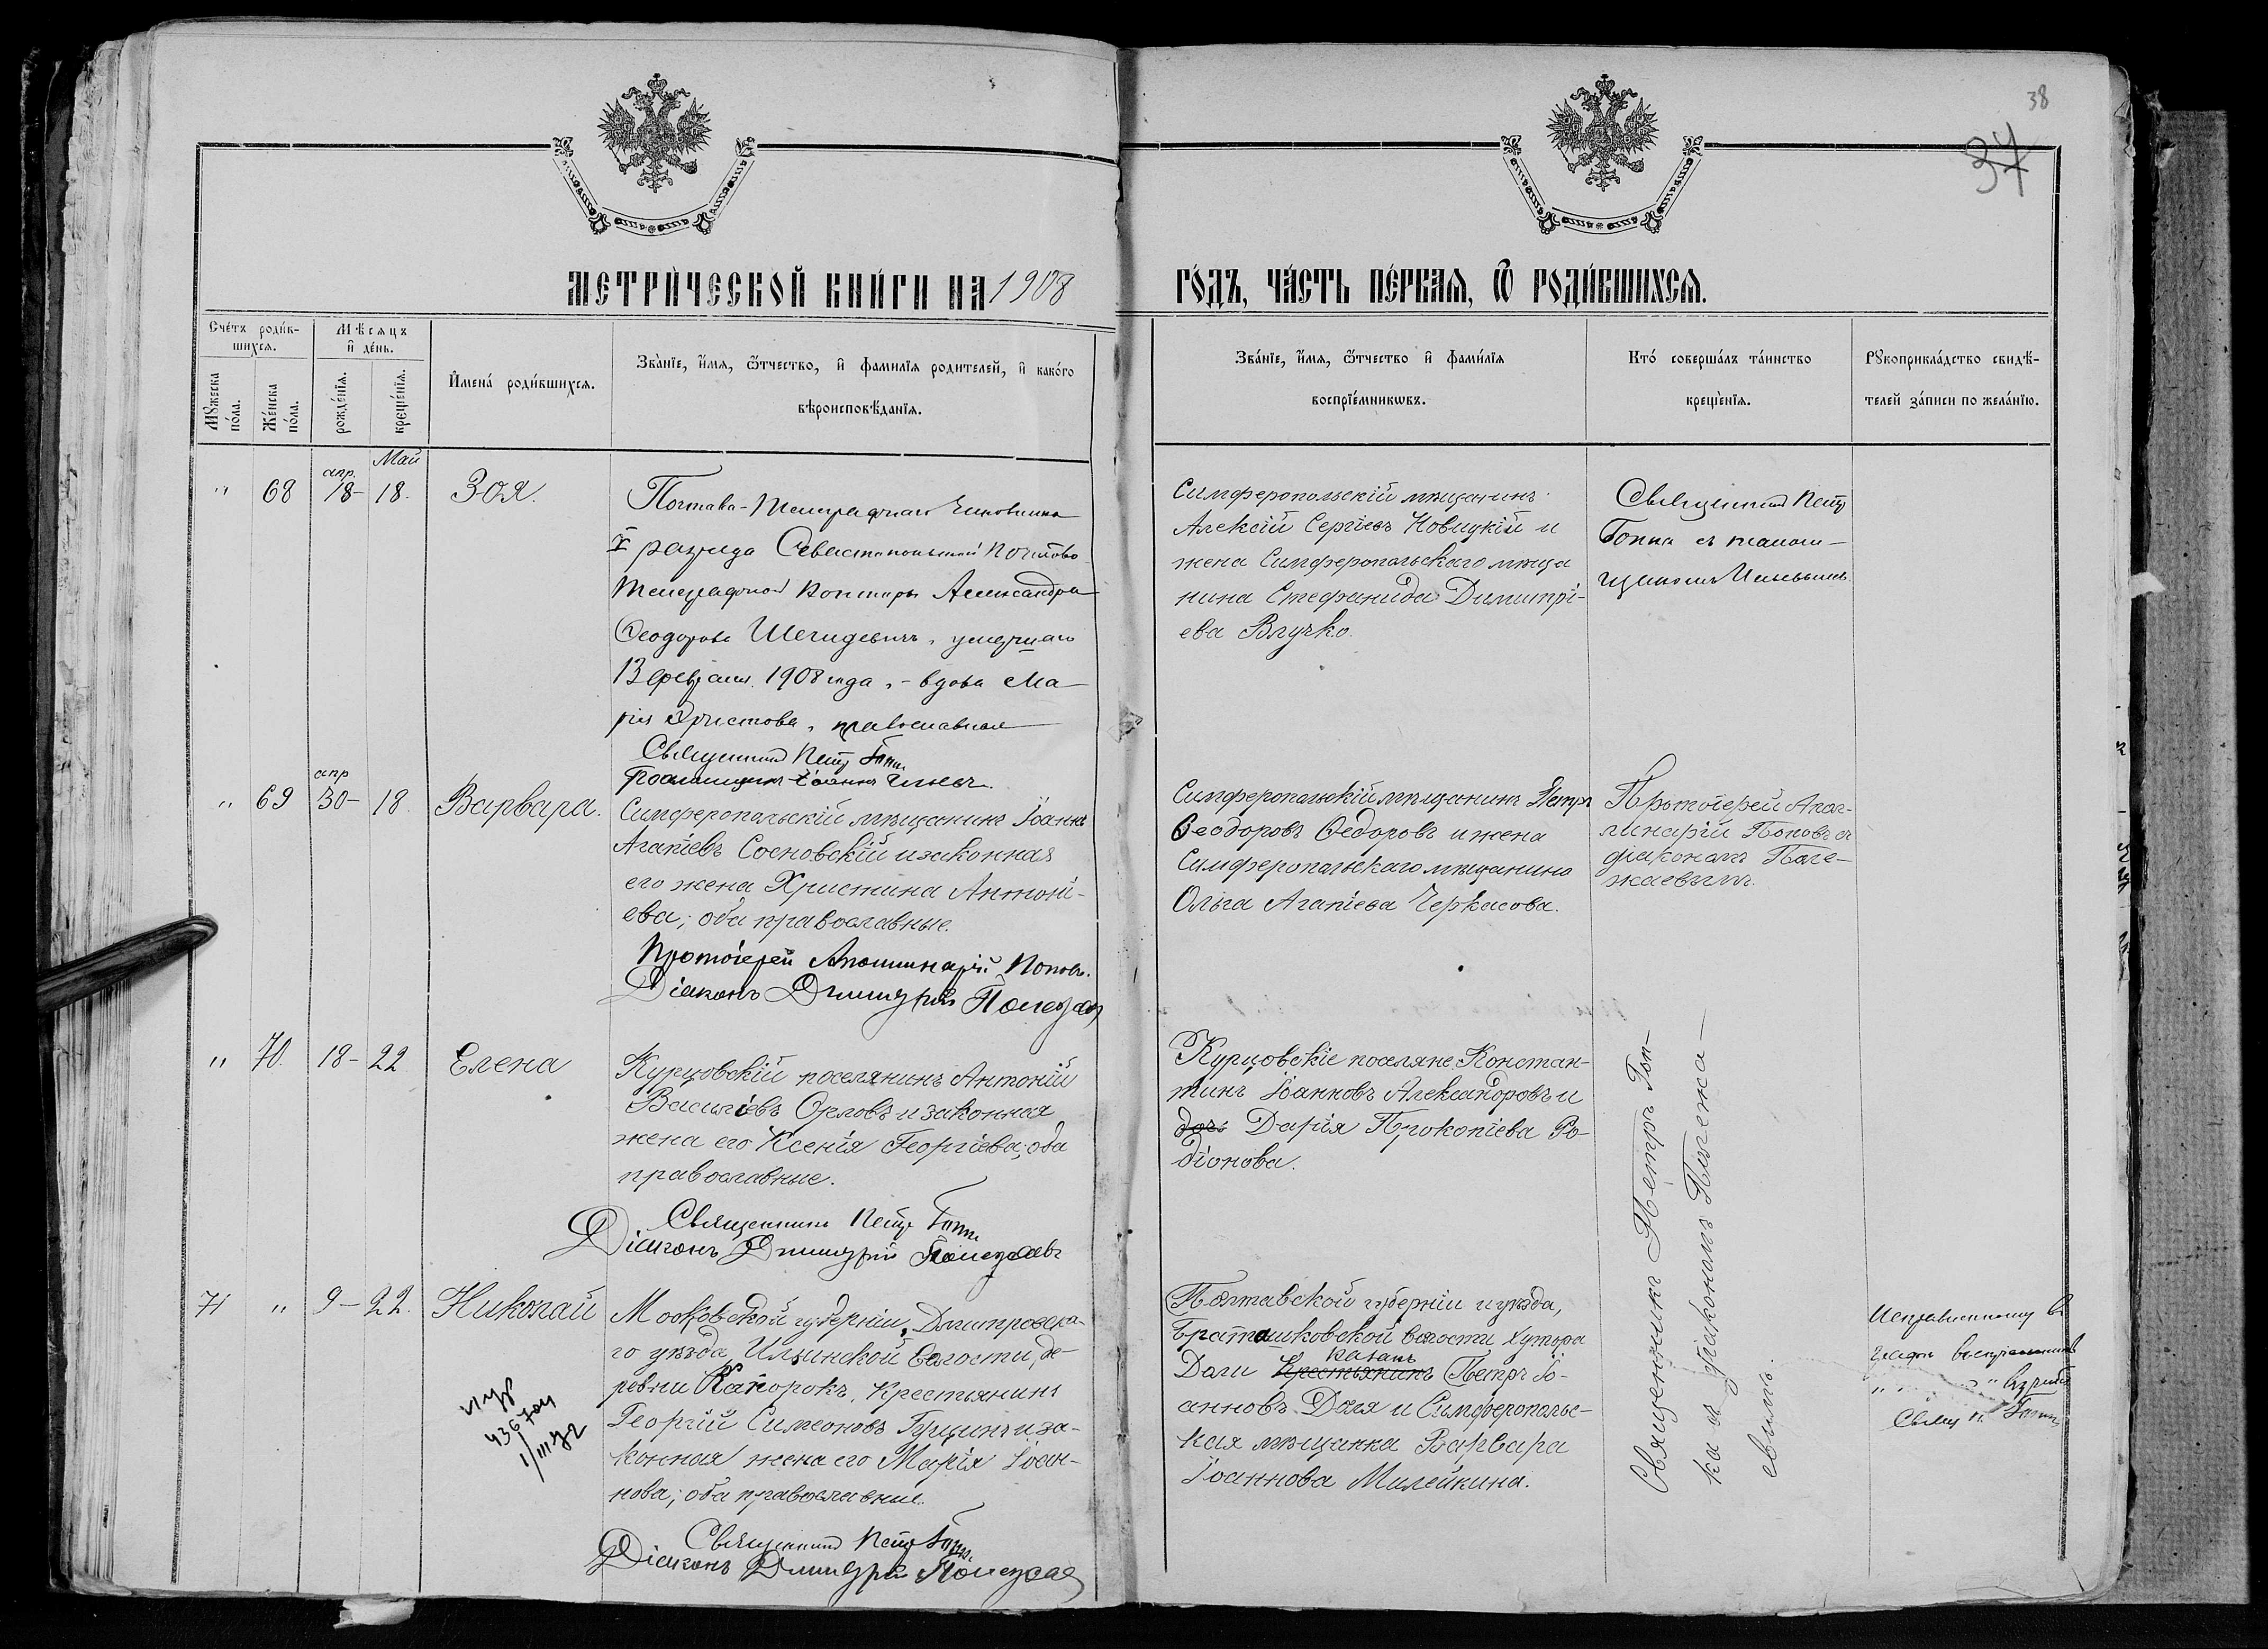 38
37
МЕТРИ́ЧЕСКОЙ КНИ́ГИ НА 1908 ГО́ДЪ, ЧА́СТЬ ПЕ́РВАЯ, Ѿ РОДИ́ВШИХСЯ.
Сче́тъ роди́в-
шихся.
Мѣ́сяцъ
и҆ де́нь.
И҆мена̀ роди́вшихся.
Зва́нїе, и҆́мя, ѻ҆́тчество, и҆ фами́лїя родителей, и҆ како́го
вѣроисповѣ́данїя.
Зва́нїе, и҆́мя, ѻ҆́тчество и҆ фами́лїя
воспрїе́мникѡвъ.
Кто́ соверша́лъ та́инство
креще́нїя.
Рꙋкоприкла́дство свидѣ́-
телей за́писи по жела́нїю.
Мꙋ́жеска
по́ла.
Же́нска
по́ла.
рожде́нїя.
креще́нїя.
Май
апр.
" 68 18- 18. Зоя.
Почтово-Телеграфнаго Чиновника
X разряда Севастопольской Почтово
Телеграфной Конторы Александра
Ѳеодорова умершаго
13 февраля 1908 года, - вдова Ма
рія Христова, православная
Священникъ Петр
Псаломщикъ Іоаннъ
Симферопольскій мѣщанинъ
Алексій Сергіевъ Новицкій и
жена Симферопольскаго мѣща
нина Стефанида Димитрі-
ева Влучко.
Священникъ Петр
съ псалом-
щикомъ
апр
" 69 30- 18. Варвара.
Симферопольскій мѣщанинъ Іоаннъ
Агапіевъ Сосновскій и законная
его жена Христина Антоні-
ева; оба православные.
Протоіерей Аполлинарій Поповъ.
Діаконъ Димитрій
Симферопольскій мѣщанинъ Петръ
Ѳеодоровъ Ѳедоровъ и жена
Симферопольскаго мѣщанина
Ольга Агапіева Черкасова.
Протоіерей Апол-
линарій Поповъ съ
діакономъ Поле-
жаевымъ.
" 70. 18- 22 Елена
Курцовскій поселянинъ Антоній
Василіевъ Орловъ и законная
жена его Ксенія Георгіева; оба
православные.
Священникъ Петр
Діаконъ Димитрій Полежаевъ
Курцовскіе поселяне Констан-
тинъ Іоанновъ Александровъ и
дочь Дарія Прокопіева Ро-
діонова.
Священникъ Петръ Гоп-
ка съ діакономъ Полежа-
евымъ.
71 " 9- 22. Николай
Московской губерніи, Дмитровска-
го уѣзда, Ильинской волости, де-
ревни крестьянинъ
Георгій Симеоновъ Гущинъ и за-
конная жена его Марія Іоан-
нова; оба православные.
Священникъ Петр
Діаконъ Димитрій Полежаев
Полтавской губерніи и уѣзда,
Браташковской волости хутора
казакъ
Доли крестьянинъ Петръ Іо-
анновъ Доля и Симферополь-
кая мѣщанка Варвара
Іоаннова Милейкина.
Исправленному въ
графѣ
вѣрить
Свящ. П.